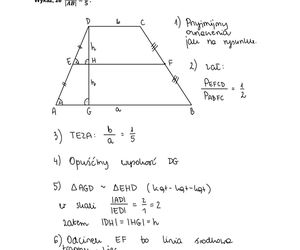 Wykaż, że |AB| = 5.
D b C
1) Przyjmijmy
oznaczenia
jak na rysunku.
h
E H F
2) Zał:
P_EFCD / P_ABFC = 1/2
h
A G a B
3) TEZA: b/a = 1/5
4) Opuśćmy wysokość DG
5) △AGD ~ △EHD (kąt-kąt-kąt)
w skali |AD|/|ED| = 2/1 = 2
zatem |DH| = |HG| = h
6) Odcinek EF to linia środkowa